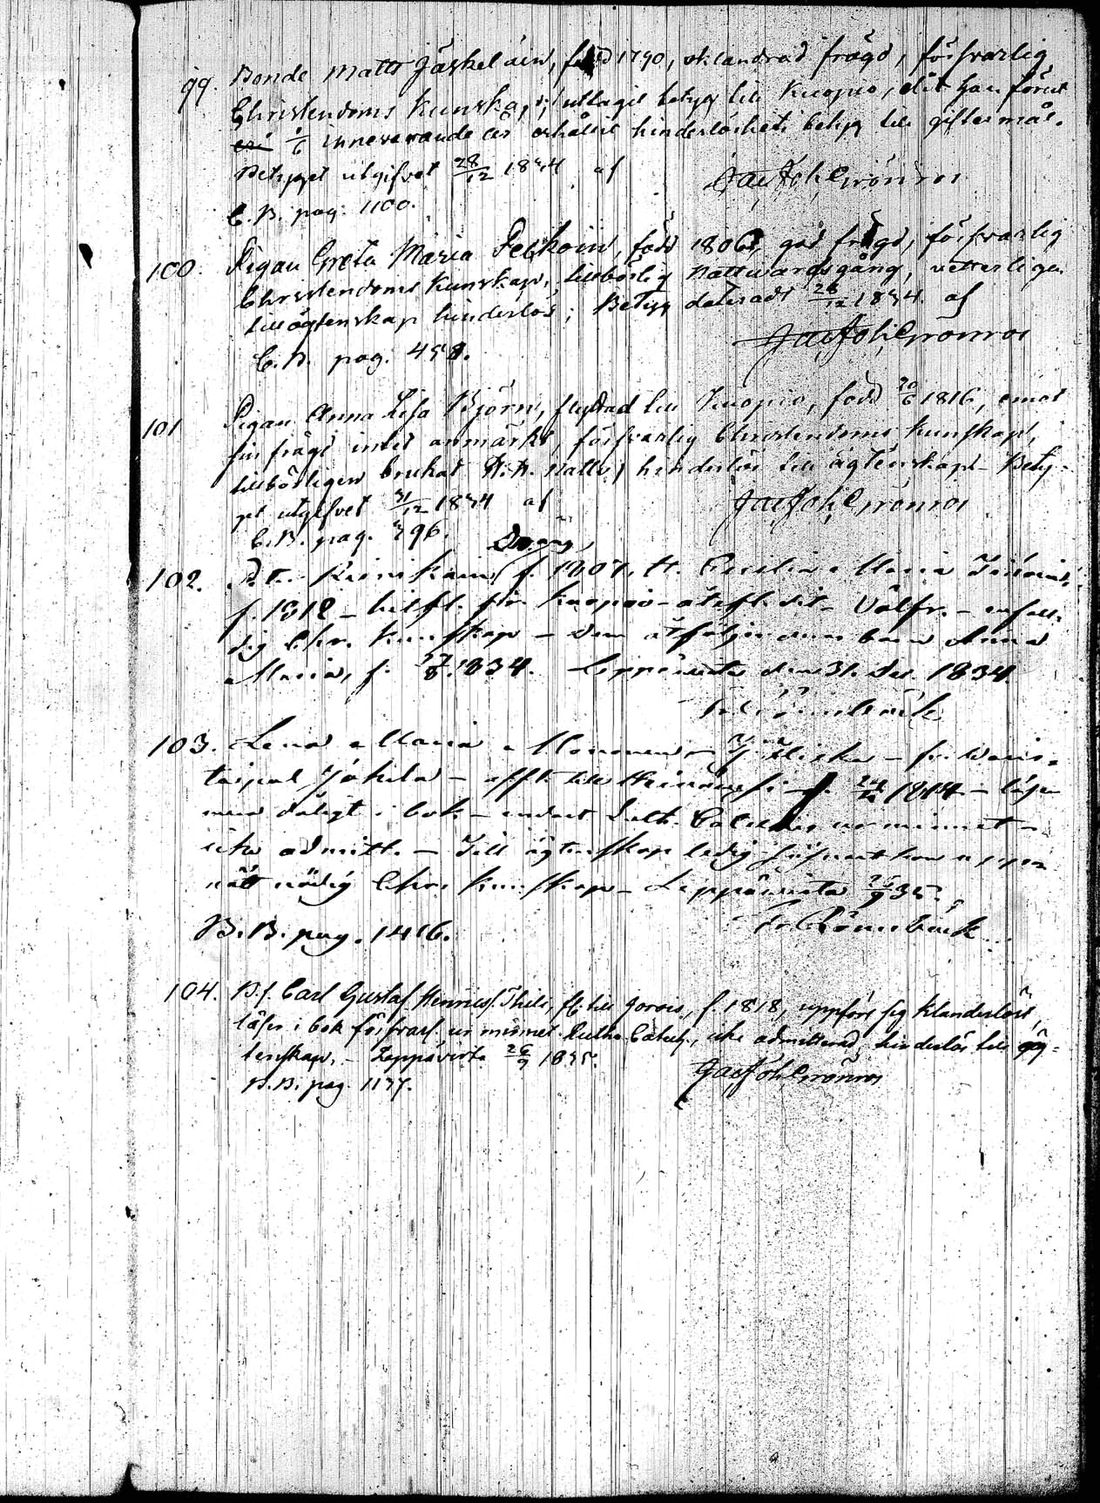 99. Bonde Matts Jäskeläin, född 1790, oklandrad frägd, försvarlig
Christendoms kunskap, uttagit betyg till Kuopio, dit han förut
1/6 innevarande år erhållit hinderlöshets betyg till giftermål.
Betyget utgifvet 28/12 1834 af Jac Joh Grönros
C.B. pag. 1100.
100. Pigan Greta Maria Pelkoin, född 1806, god frägd, försvarlig
Christendoms kunskap, tillbörlig Nattvardsgång, vetterligen
till ägtenskap hinderlös; Betyg dateradt 28/12 1834 af
Jac Joh Grönros
C.B. pag. 458.
101 Pigan Anna Lisa Björn, flyttad till Kuopio, född 20/6 1816, emot
sin frägd intet anmärkt, försvarlig Christendoms kunskap,
tillbörligen brukat H. H. Nattv, hinderlös till ägtenskap Bety-
get utgifvet 31/12 1834 af Jac Joh Grönros
C.B. pag. 796.
Dräng
102. f. 1807, H. Cecilia Maria
f. 1812 – Kuopio – åtefl. dit – Välfr. – enfal-
dig Chr. kunskap – dem åtföljer barn Anna
Maria, f. 17/8 1834. Leppävirta den 31. Dec. 1834
Rönnbäck
103. Lena Maria Mononen –
Jokela – – f. 24/12 1814 – läser
i bok – endast Luth. Cateches ur minnet –
icke admitt. – Till ägtenskap ledig
nått nödig Chr. kunskap – Leppävirta 26/9 35.
B.B. pag. 1416. Fr Rönnbäck
104. B.f. Carl Gustaf Henrics. Thile, fl. till f. 1818, uppför sig klanderlöst,
läser i bok försvarl. ur minnet Luthe Catech, icke admitterad, hinderlös till äg-
tenskap. – Leppävirta 26/9 1835.
B.B. pag. 1137. Jac Joh Grönros